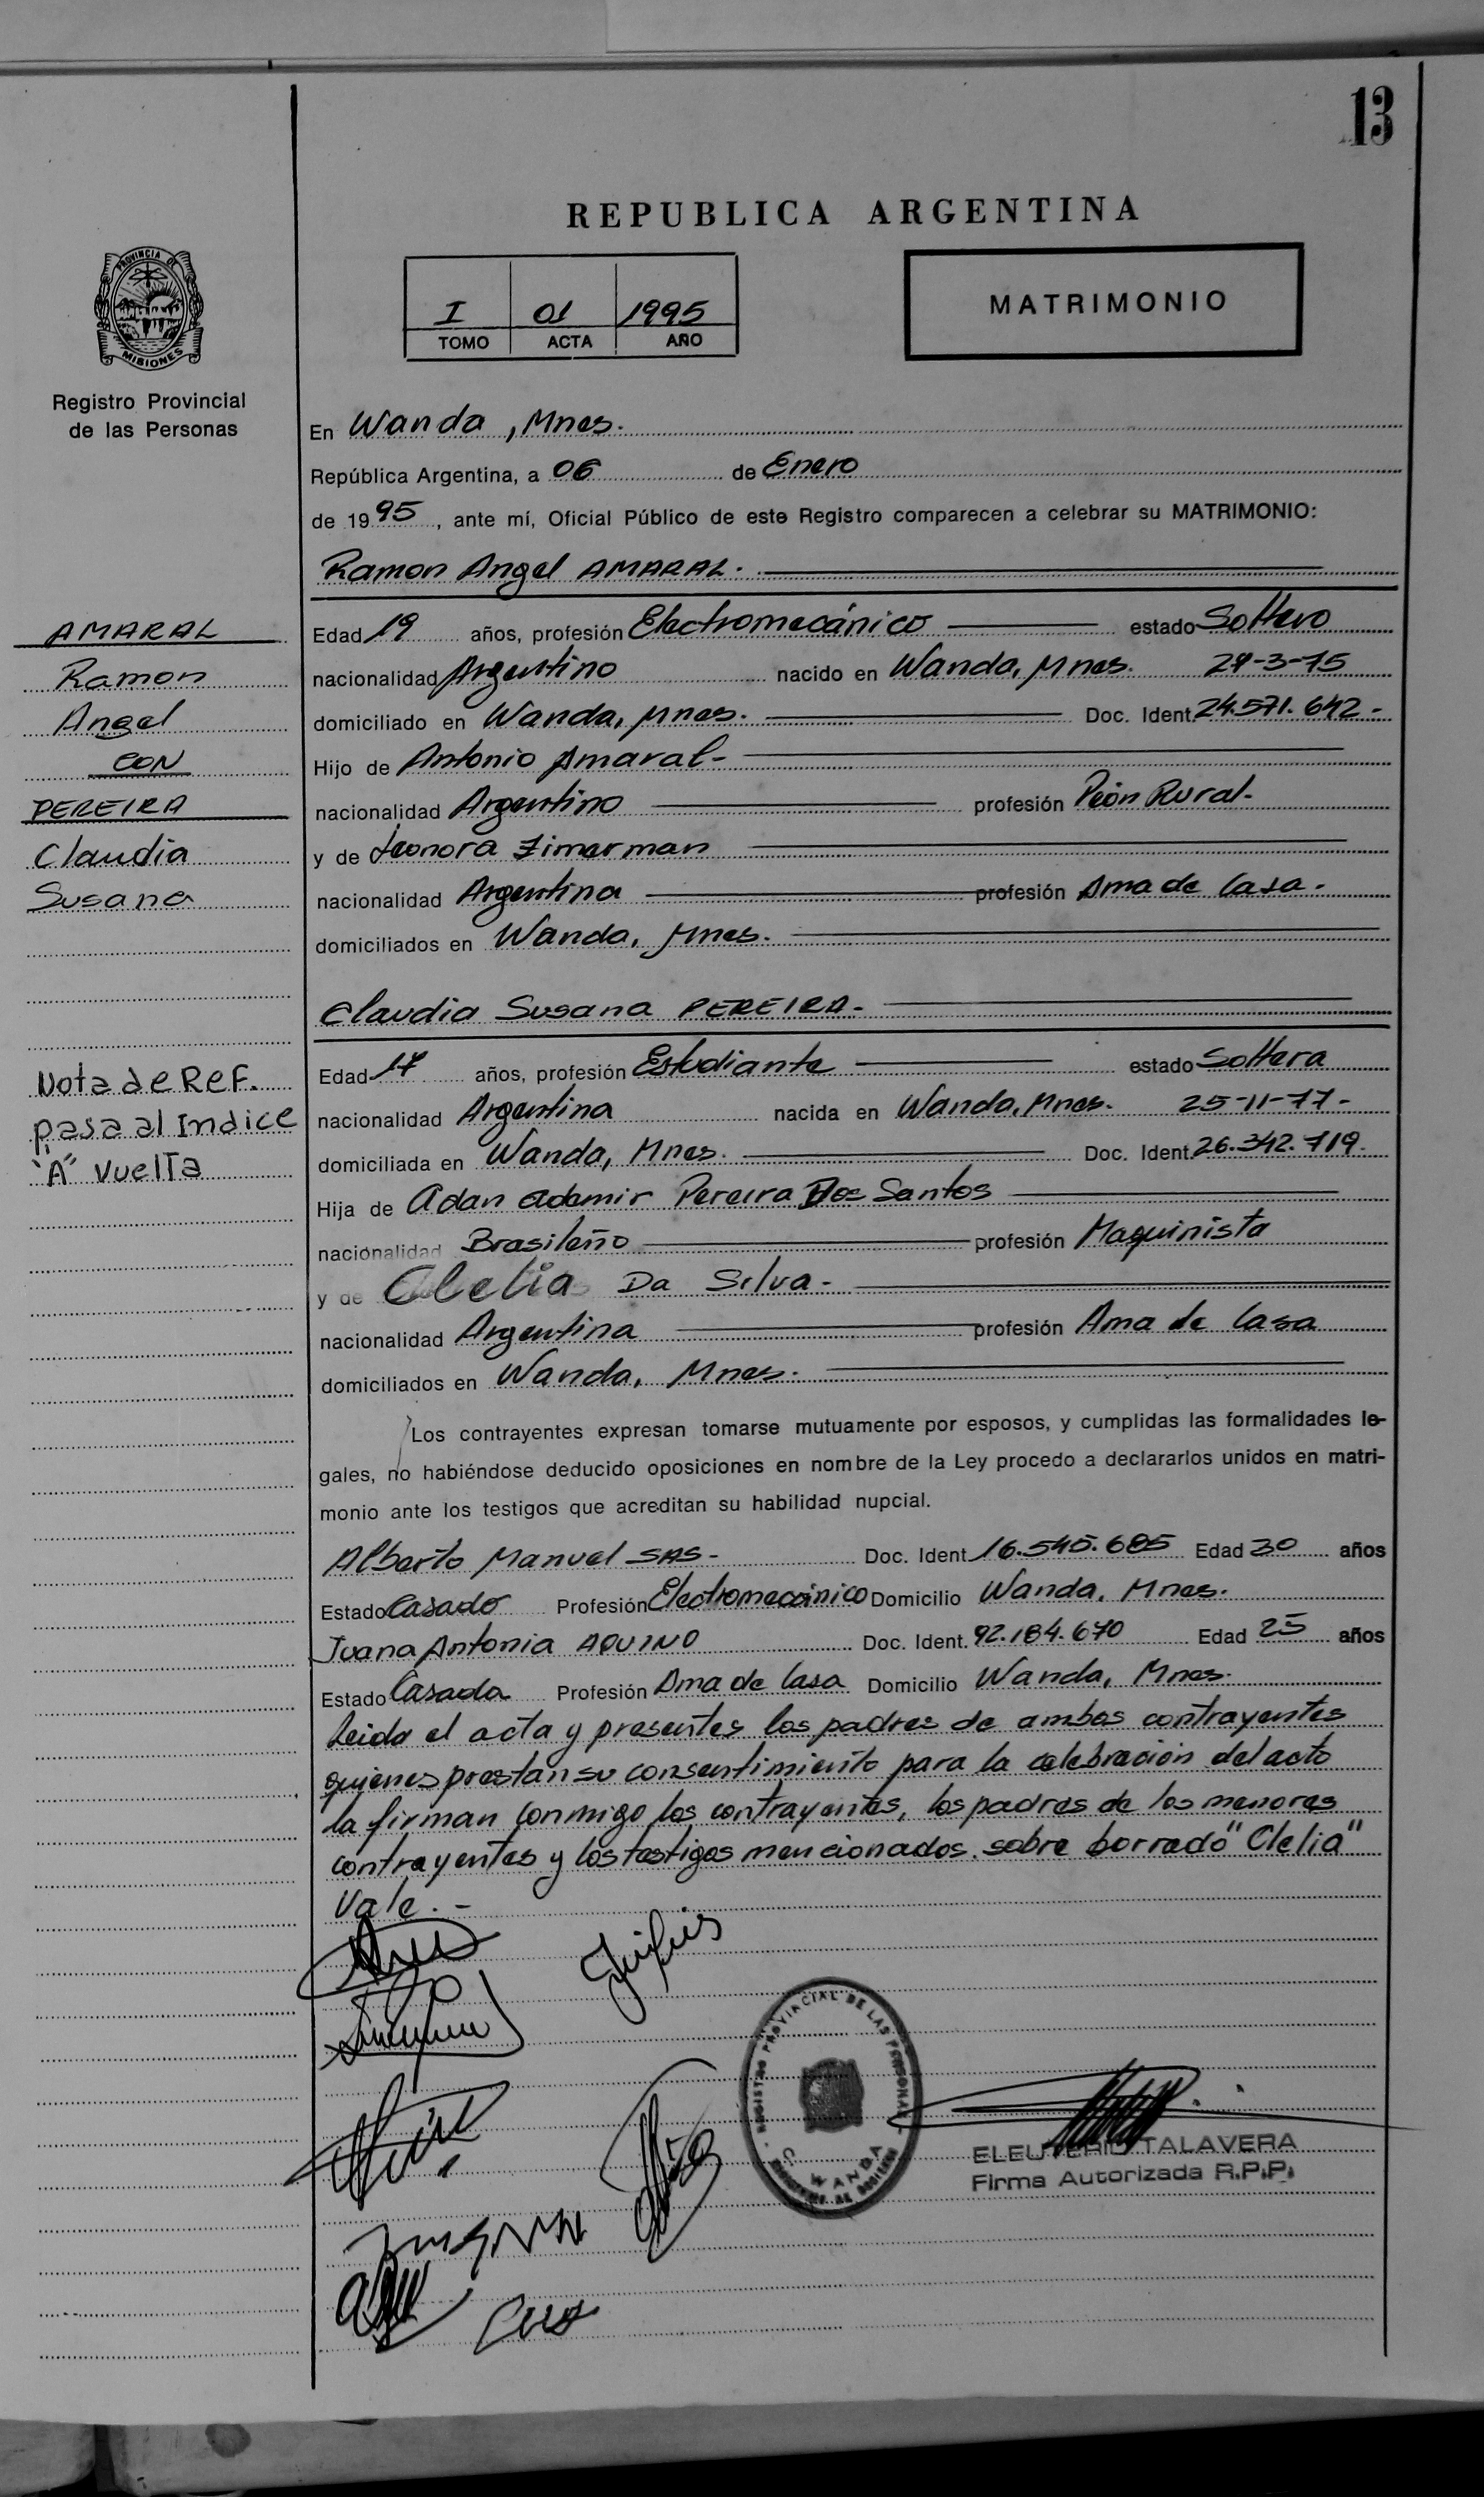 13
REPUBLICA ARGENTINA
PROVINCIA DE
MISIONES
Registro Provincial
de las Personas
I 01 1995
TOMO ACTA AÑO
MATRIMONIO
En Wanda, Mnes.
República Argentina, a 06 de Enero
de 1995, ante mí, Oficial Público de este Registro comparecen a celebrar su MATRIMONIO:
Ramon Angel AMARAL.
AMARAL
Ramon
Angel
CON
PEREIRA
Claudia
Susana
Edad 19 años, profesión Electromecánico estado Soltero
nacionalidad Argentino nacido en Wanda, Mnes.
domiciliado en Wanda, Mnes. Doc. Ident. 24.571.642-
Hijo de Antonio Amaral-
nacionalidad Argentino profesión Peón Rural.
y de Leonora Zimerman
nacionalidad Argentina profesión Ama de Casa.
domiciliados en Wanda, Mnes.
Claudia Susana PEREIRA-
Nota de Ref.
pasa al Indice
"A" Vuelta
Edad 17 años, profesión Estudiante estado Soltera
nacionalidad Argentina nacida en Wanda, Mnes. 25-11-77-
domiciliada en Wanda, Mnes. Doc. Ident. 26.342.719.
Hija de Adan Ademir Pereira Dos Santos
nacionalidad Brasileño profesión Maquinista
y de Clelia Da Silva-
nacionalidad Argentina profesión Ama de Casa
domiciliados en Wanda, Mnes.
Los contrayentes expresan tomarse mutuamente por esposos, y cumplidas las formalidades le-
gales, no habiéndose deducido oposiciones en nombre de la Ley procedo a declararlos unidos en matri-
monio ante los testigos que acreditan su habilidad nupcial.
Alberto Manuel SAS- Doc. Ident. 16.545.685 Edad 30 años
Estado Casado Profesión Electromecánico Domicilio Wanda, Mnes.
Juana Antonia AQUINO Doc. Ident. 92.184.670 Edad 25 años
Estado Casada Profesión Ama de Casa Domicilio Wanda, Mnes.
Leida el acta y presentes los padres de ambos contrayentes
quienes prestan su consentimiento para la celebración del acto
la firman conmigo los contrayentes, los padres de los menores
contrayentes y los testigos mencionados. sobre borrado "Clelia"
Vale.-
REGISTRO PROVINCIAL DE LAS PERSONAS
WANDA
ELEUTERIO TALAVERA
Firma Autorizada R.P.P.